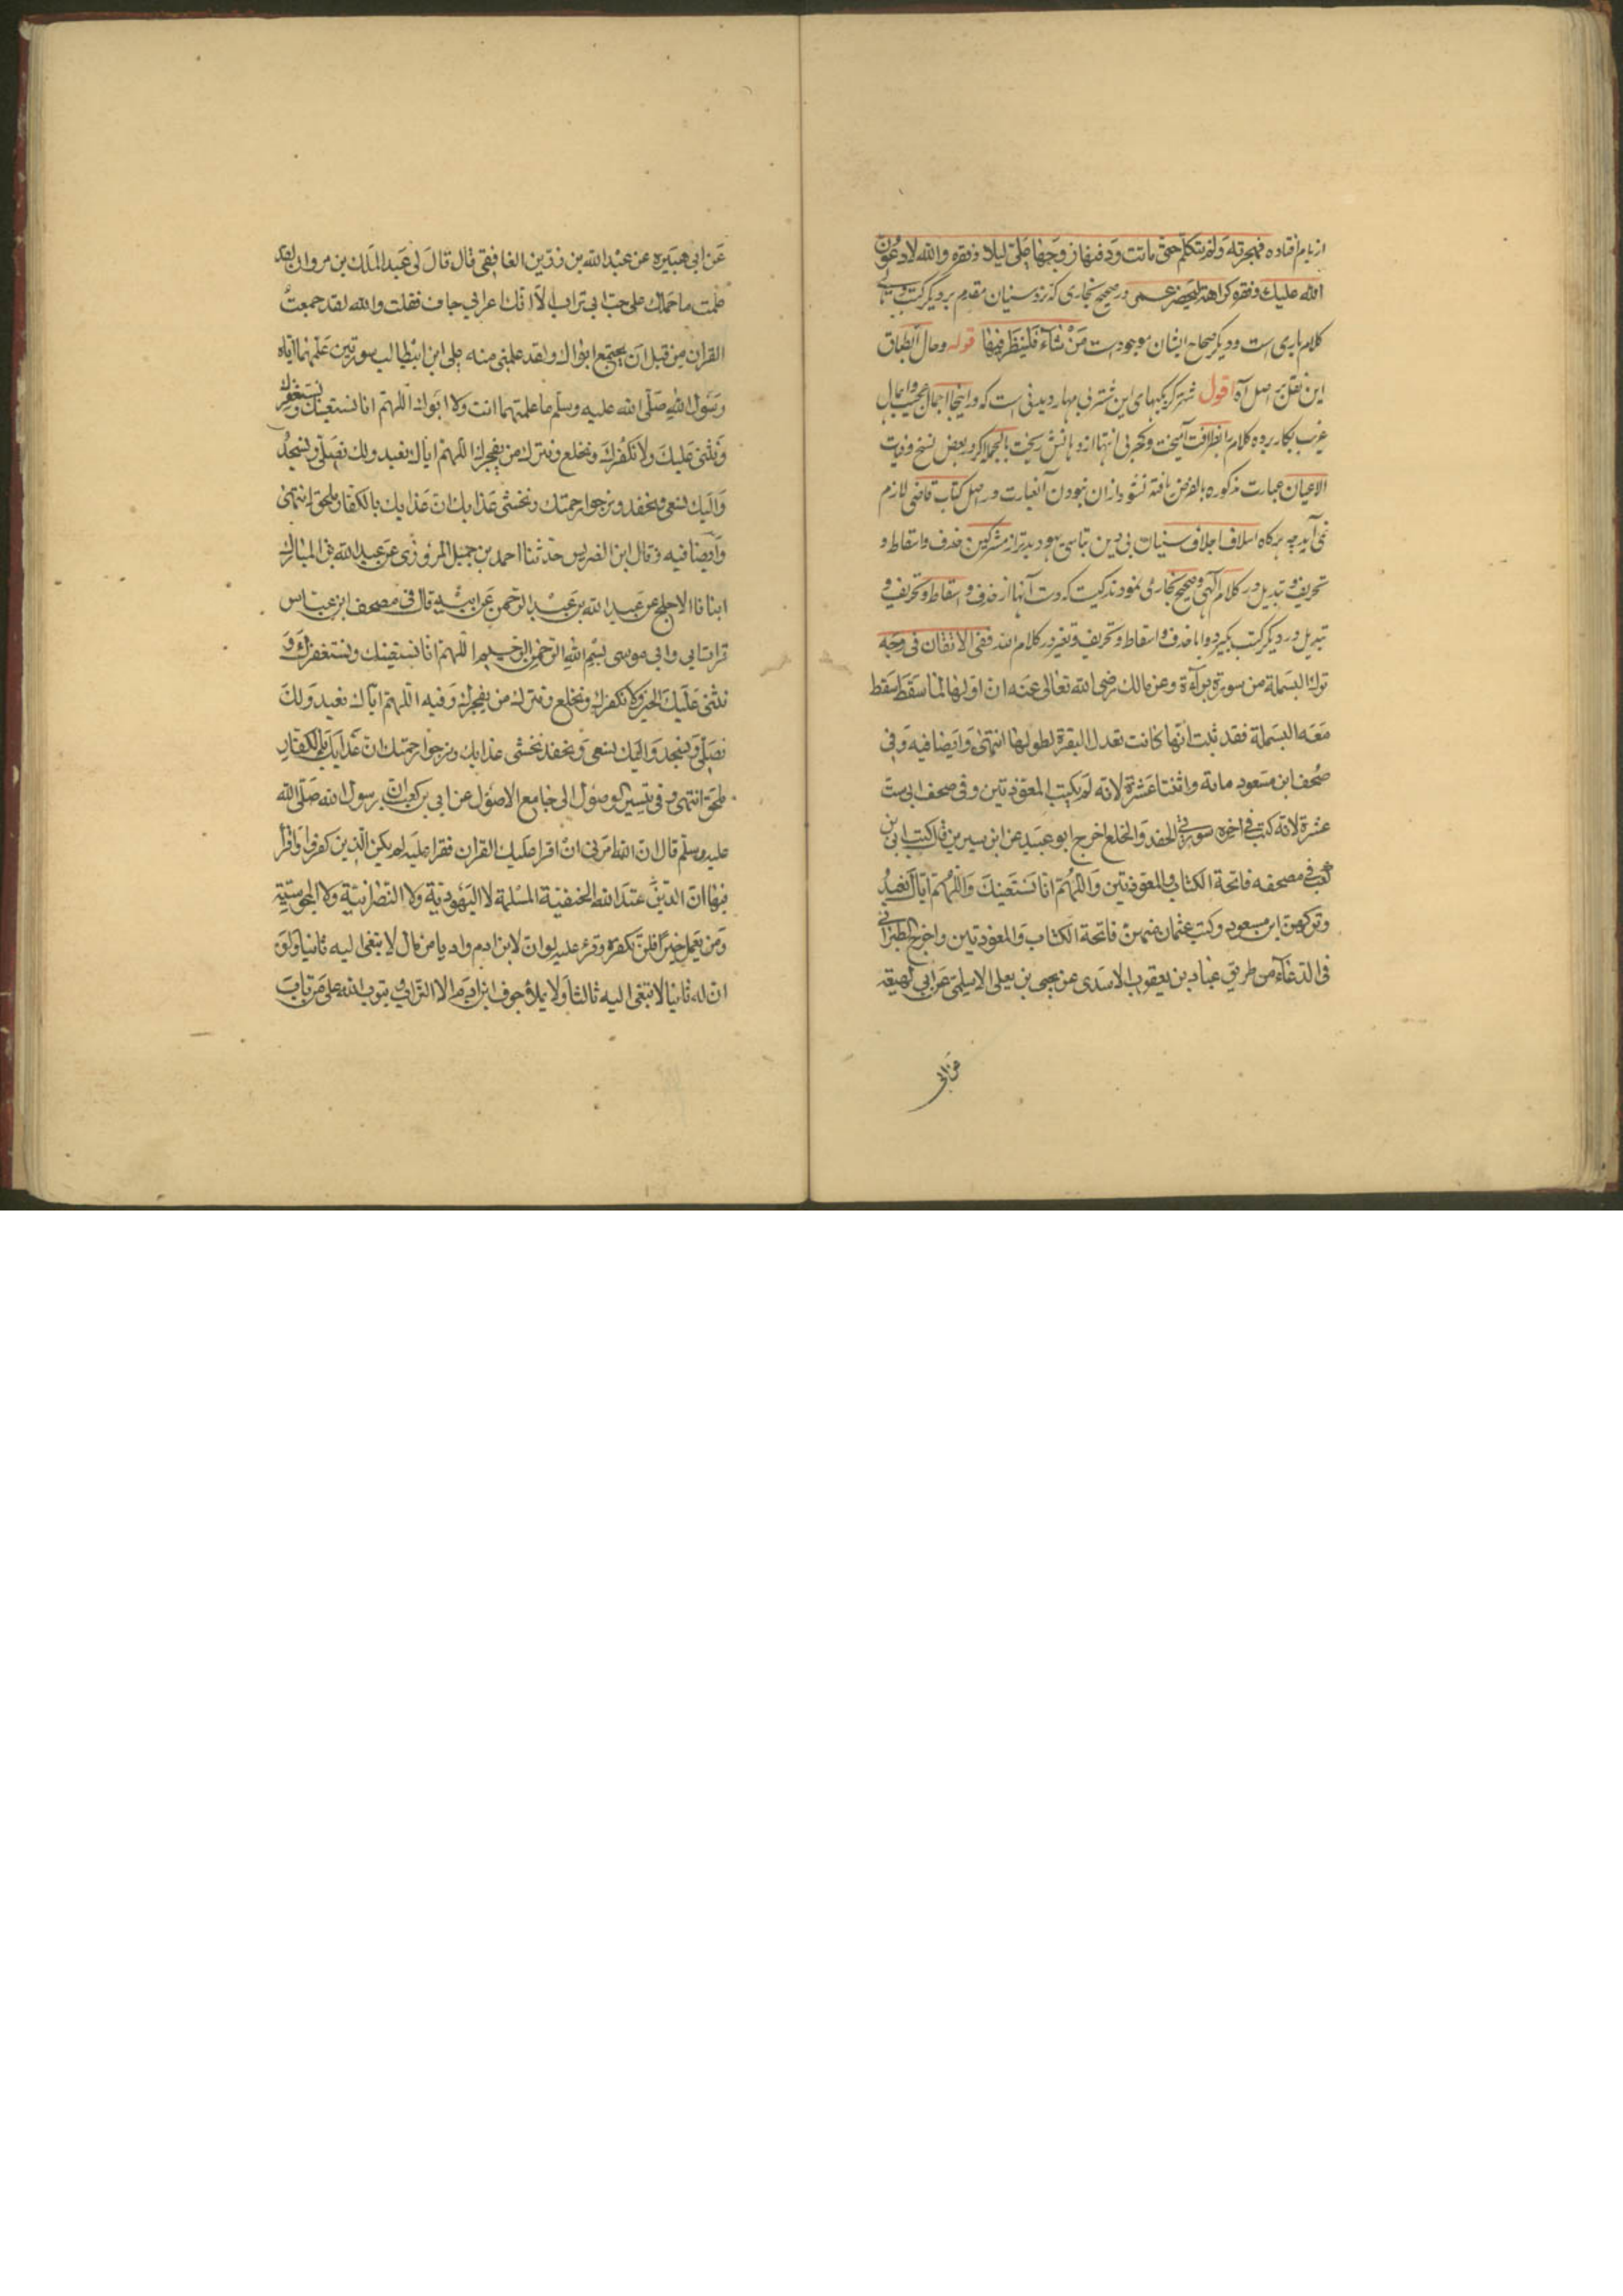 از بام افتاده فهجرته ولم تتكلم حتى ماتت ودفنها زوجها علی ليلا وفقره والله لادعون
الله عليك وفقره كراهة ليحضر عمر در صحيح بخاری كه نزد سنيان مقدم بر ديگر كتب
كلام باری است و ديگر صحاح ايشان موجود است من شاء فلينظر فيها قوله وحال انطباق
اين نقل بر اصل آه اقول شتر اين شتر بی مهار ديدنی است كه در اينجا
غريب بكار برده كلام را بظرافت آميخت از دهانش ريخت بالجمله اگر در بعض نسخ وفيات
الاعيان عبارت مذكوره بالفرض يافته نشود ازان نبودن آنعبارت در اصل كتاب قاضی لازم
نمی آيد چه هرگاه اسلاف اجلاف سنيان بی دين بتاسی يهود بدتر از مشركين حذف و اسقاط و
تحريف و تبديل در كلام الهی و صحيح بخاری نمودند كيست كه دست آنها از حذف و اسقاط و تحريف و
تبديل در ديگر كتب بگيرد و اما حذف و اسقاط و تحريف و تغير در كلام الله ففی الاتقان فی وجه
ترك البسملة من سورة براءة وعن مالك رضی الله تعالی عنه ان اولها لما سقط سقط
معه البسملة فقد ثبت انها كانت تعدل البقرة لطولها انتهی وايضا فيه وفی
صحف ابن مسعود مائة واثنتا عشرة لانه لم يكتب المعوذتين وفی صحف ابی ست
عشرة لانه كتب فی اخره سورتی الحفد والخلع اخرج ابو عبيد عن ابن سيرين قال كتب ابی بن
كعب فی مصحفه فاتحة الكتاب والمعوذتين واللهم انا نستعينك واللهم اياك نعبد
وتركهن ابن مسعود وكتب عثمان منهن فاتحة الكتاب والمعوذتين واخرج الطبرانی
فی الدعاء من طريق عباد بن يعقوب الاسدی عن يحيی بن يعلی الاسلمی عن ابی لهيعة
عن ابی
عن ابی هبيره عن عبد الله بن زرين الغافقی قال قال لی عبد الملك بن مروان لقد
علمت ما حملك علی حب ابی تراب الا انك اعرابی جاف فقلت والله لقد جمعت
القران من قبل ان يجتمع ابواك ولقد علمنی منه علی ابن ابيطالب سورتين علمهما اياه
رسول الله صلی الله عليه وسلم ما علمتهما انت ولا ابوك اللهم انا نستعينك ونستغفرك
ونثنی عليك ولا نكفرك ونخلع ونترك من يفجرك اللهم اياك نعبد ولك نصلی ونسجد
واليك نسعی ونحفد ونرجوا رحمتك ونخشی عذابك ان عذابك بالكفار ملحق انتهی
وايضا فيه وقال ابن الضريس حدثنا احمد بن جميل المروزی عن عبد الله بن المبارك
انبانا الاجلح عن عبد الله بن عبد الرحمن عن ابيه قال فی مصحف ابن عباس
قراءة ابی وابی موسی بسم الله الرحمن الرحيم اللهم انا نستعينك ونستغفرك و
نثنی عليك الخير ولا نكفرك ونخلع ونترك من يفجرك وفيه اللهم اياك نعبد ولك
نصلی ونسجد واليك نسعی ونحفد نخشی عذابك ونرجوا رحمتك ان عذابك بالكفار
ملحق انتهی وفی تيسير الوصول الی جامع الاصول عن ابی بن كعب ان رسول الله صلی الله
عليه وسلم قال ان الله امرنی ان اقرا عليك القران فقرا عليه لم يكن الذين كفروا وقرا
فيها ان الدين عند الله الحنفية المسلمة لا اليهودية ولا النصرانية ولا المجوسية
ومن يعمل خيرا فلن يكفره وقرء عليه لو ان لابن ادم واديا من مال لابتغی اليه ثانيا ولو
ان له ثانيا لابتغی اليه ثالثا ولا يملاء جوف ابن ادم الا التراب ويتوب الله علی من تاب